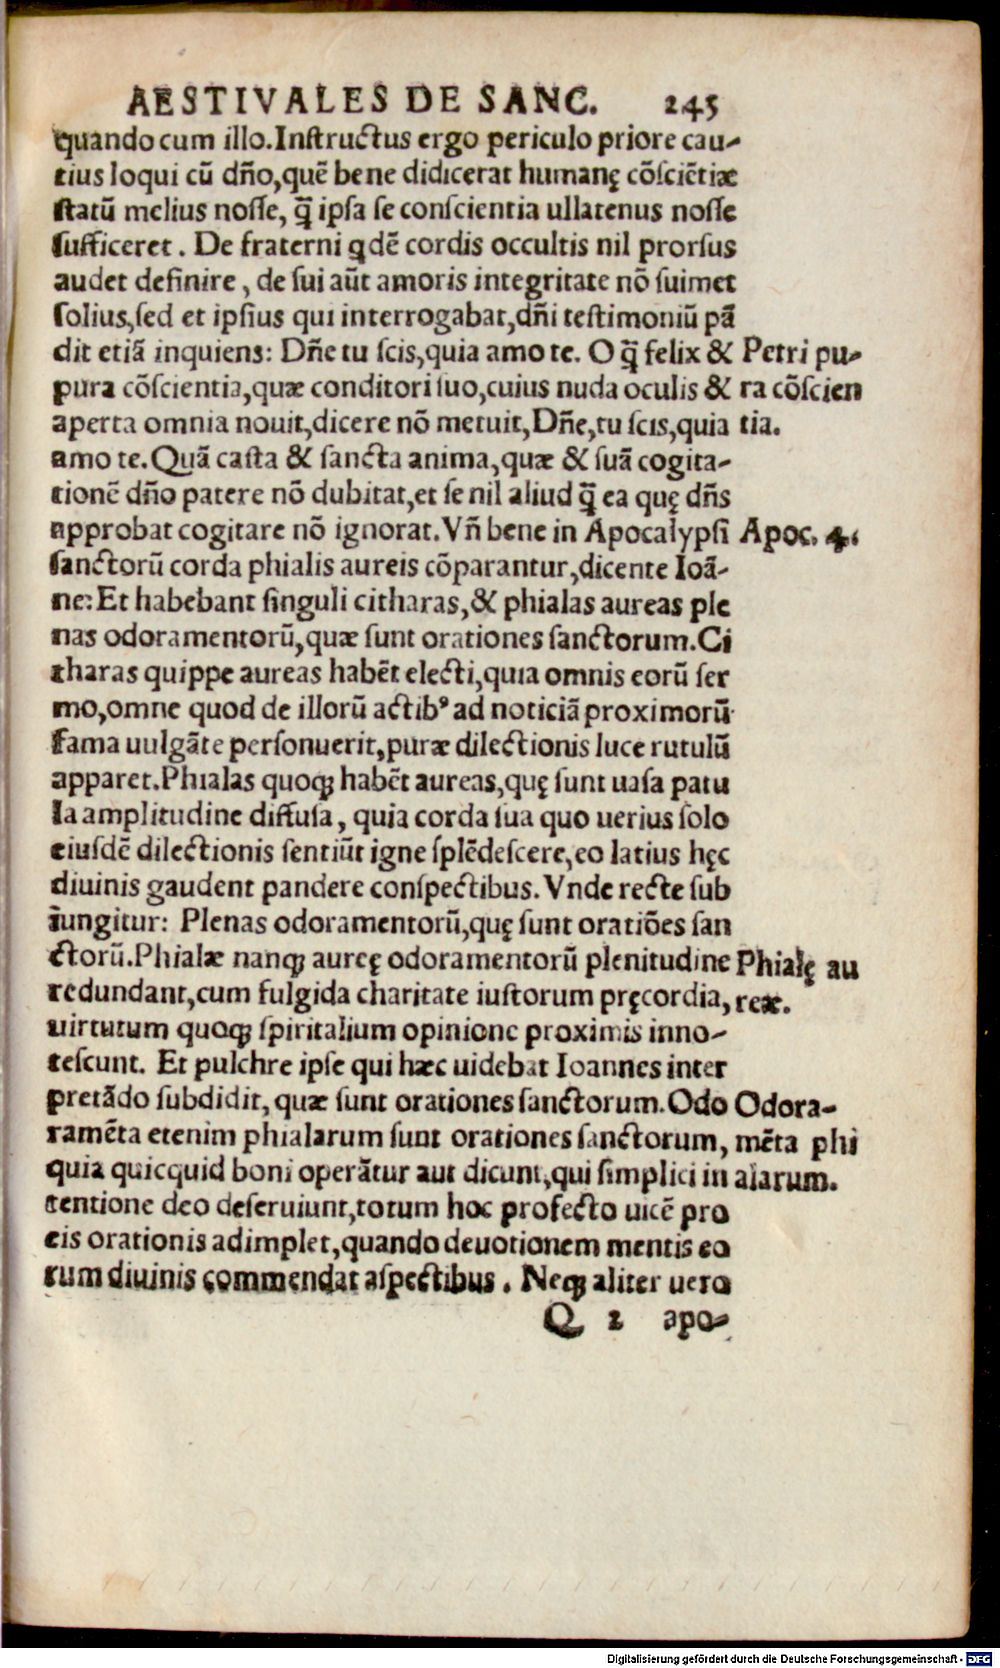 AESTIVALES DE SANC. 245
quando cum illo. Instructus ergo periculo priore cau-
tius loqui cū dño, quē bene didicerat humanę cōsciētiæ
statū melius nosse, q̄ ipsa se conscientia ullatenus nosse
sufficeret. De fraterni qdē cordis occultis nil prorsus
audet definire, de sui aūt amoris integritate nō suimet
solius, sed et ipsius qui interrogabat, dñi testimoniū pā
dit etiā inquiens: Dñe tu scis, quia amo te. O q̄ felix &
Petri pu-
pura cōscientia, quæ conditori suo, cuius nuda oculis &
ra cōscien
aperta omnia nouit, dicere nō metuit, Dñe, tu scis, quia
tia.
amo te. Quā casta & sancta anima, quæ & suā cogita-
tionē dño patere nō dubitat, et se nil aliud q̄ ea quę dñs
approbat cogitare nō ignorat. Vñ bene in Apocalypsi
Apoc. 4.
sanctorū corda phialis aureis cōparantur, dicente Ioā-
ne: Et habebant singuli citharas, & phialas aureas ple
nas odoramentorū, quæ sunt orationes sanctorum. Ci
tharas quippe aureas habēt electi, quia omnis eorū ser
mo, omne quod de illorū actibꝰ ad noticiā proximorū
fama uulgāte personuerit, puræ dilectionis luce rutulū
apparet. Phialas quoqꝫ habēt aureas, quę sunt uasa patu
la amplitudine diffusa, quia corda sua quo uerius solo
eiusdē dilectionis sentiūt igne splēdescere, eo latius hęc
diuinis gaudent pandere conspectibus. Vnde recte sub
iungitur: Plenas odoramentorū, quę sunt oratiōes san
ctorū. Phialæ nanqꝫ aureę odoramentorū plenitudine
Phialę au
redundant, cum fulgida charitate iustorum pręcordia,
reæ.
uirtutum quoqꝫ spiritalium opinione proximis inno-
tescunt. Et pulchre ipse qui hæc uidebat Ioannes inter
pretādo subdidit, quæ sunt orationes sanctorum. Odo
Odora-
ramēta etenim phialarum sunt orationes sanctorum,
mēta phi
quia quicquid boni operātur aut dicunt, qui simplici in
alarum.
tentione deo deseruiunt, totum hoc profecto uicē pro
eis orationis adimplet, quando deuotionem mentis eo
rum diuinis commendat aspectibus. Neqꝫ aliter uero
Q 2 apo-
Digitalisierung gefördert durch die Deutsche Forschungsgemeinschaft - DFG